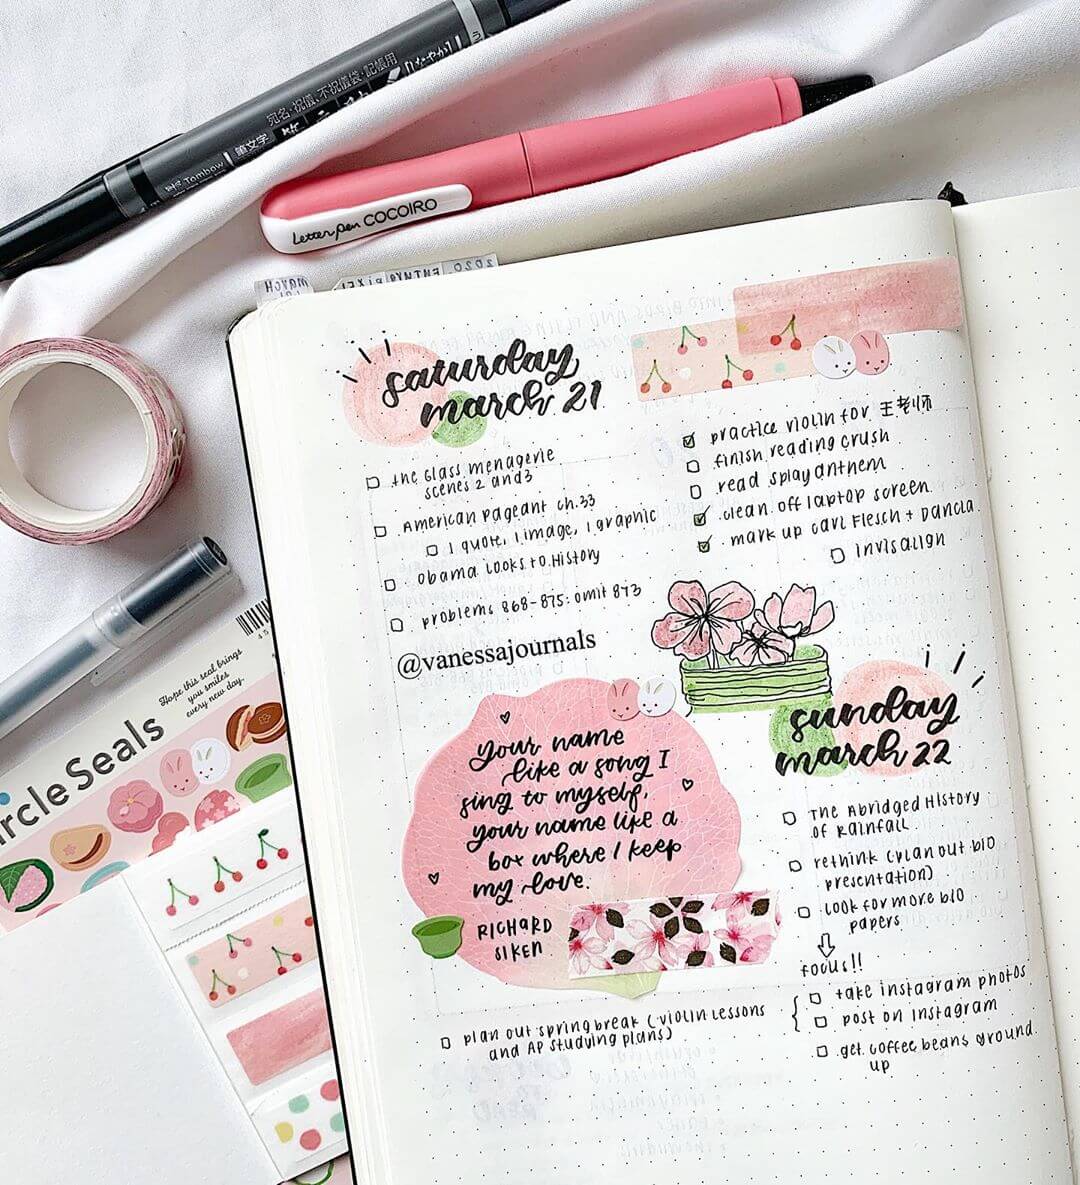 Tombow
筆文字
宛名・祝儀、不祝儀袋・記帳用
しなやか
Letter pen COCOIRO
saturday
march 21
the Glass menagerie
scenes 2 and 3
American Pageant ch.33
1 quote, 1 image, 1 graphic
Obama Looks to History
problems 868-875: omit 873
@vanessajournals
practice violin for 王老师
finish reading crush
read splay anthem
clean off laptop screen
mark up Carl Flesch + Dancla
invisalign
Your name
like a song I
sing to myself,
your name like a
box where I keep
my love.
RICHARD
SIKEN
plan out spring break (violin lessons
and AP studying plans)
sunday
march 22
The Abridged History
of Rainfall
rethink (plan out bio
presentation)
look for more bio
papers
focus!!
take instagram photos
post on instagram
get coffee beans ground
up
Hope this seal brings
you smiles
every new day.
rcle Seals